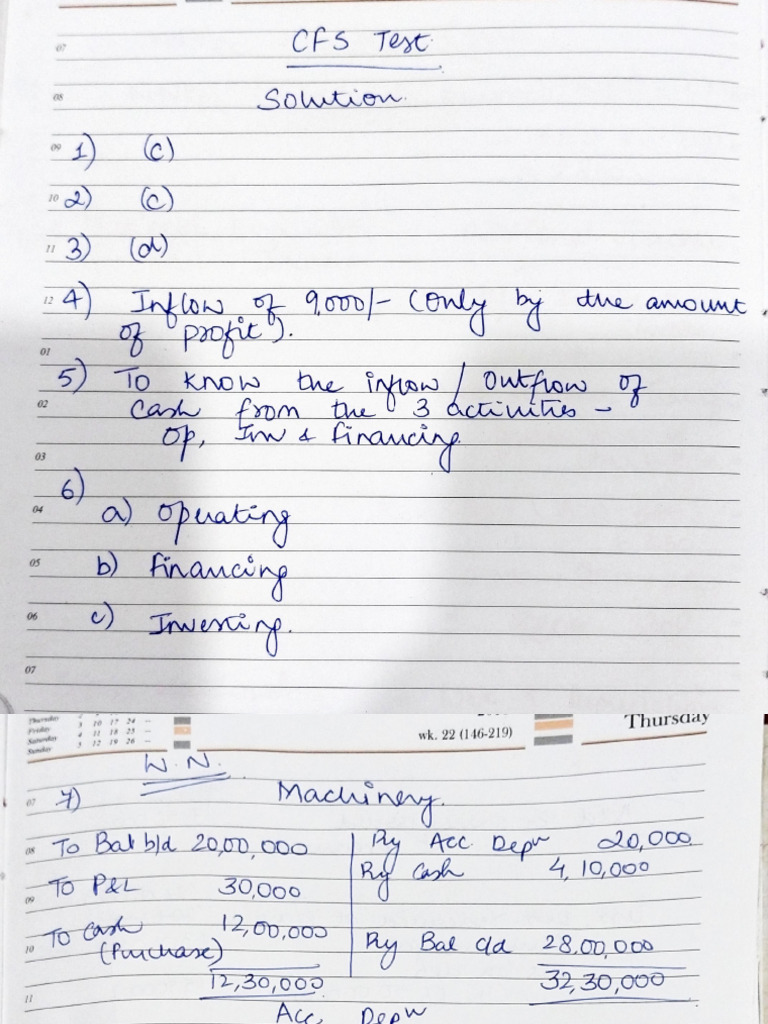 07
CFS Test
08
Solution.
09 1) (c)
10 2) (c)
11 3) (d)
12 4) Inflow of 9,000/- (Only by the amount
of profit).
01
5) To know the inflow / outflow of
02 cash from the 3 activities -
Op, Inv & financing.
03
6)
04 a) Operating
05 b) financing
06 c) Investing.
07
Thursday 3 10 17 24 -
Friday 4 11 18 25 -
Saturday 5 12 19 26 -
Sunday
wk. 22 (146-219) Thursday
W.N.
07 7) Machinery.
08 To Bal b/d 20,00,000 By Acc. Depn 20,000
By Cash 4,10,000
09 To P&L 30,000
To Cash 12,00,000
10 (Purchase) By Bal c/d 28,00,000
12,30,000 32,30,000
11
Acc. Depn